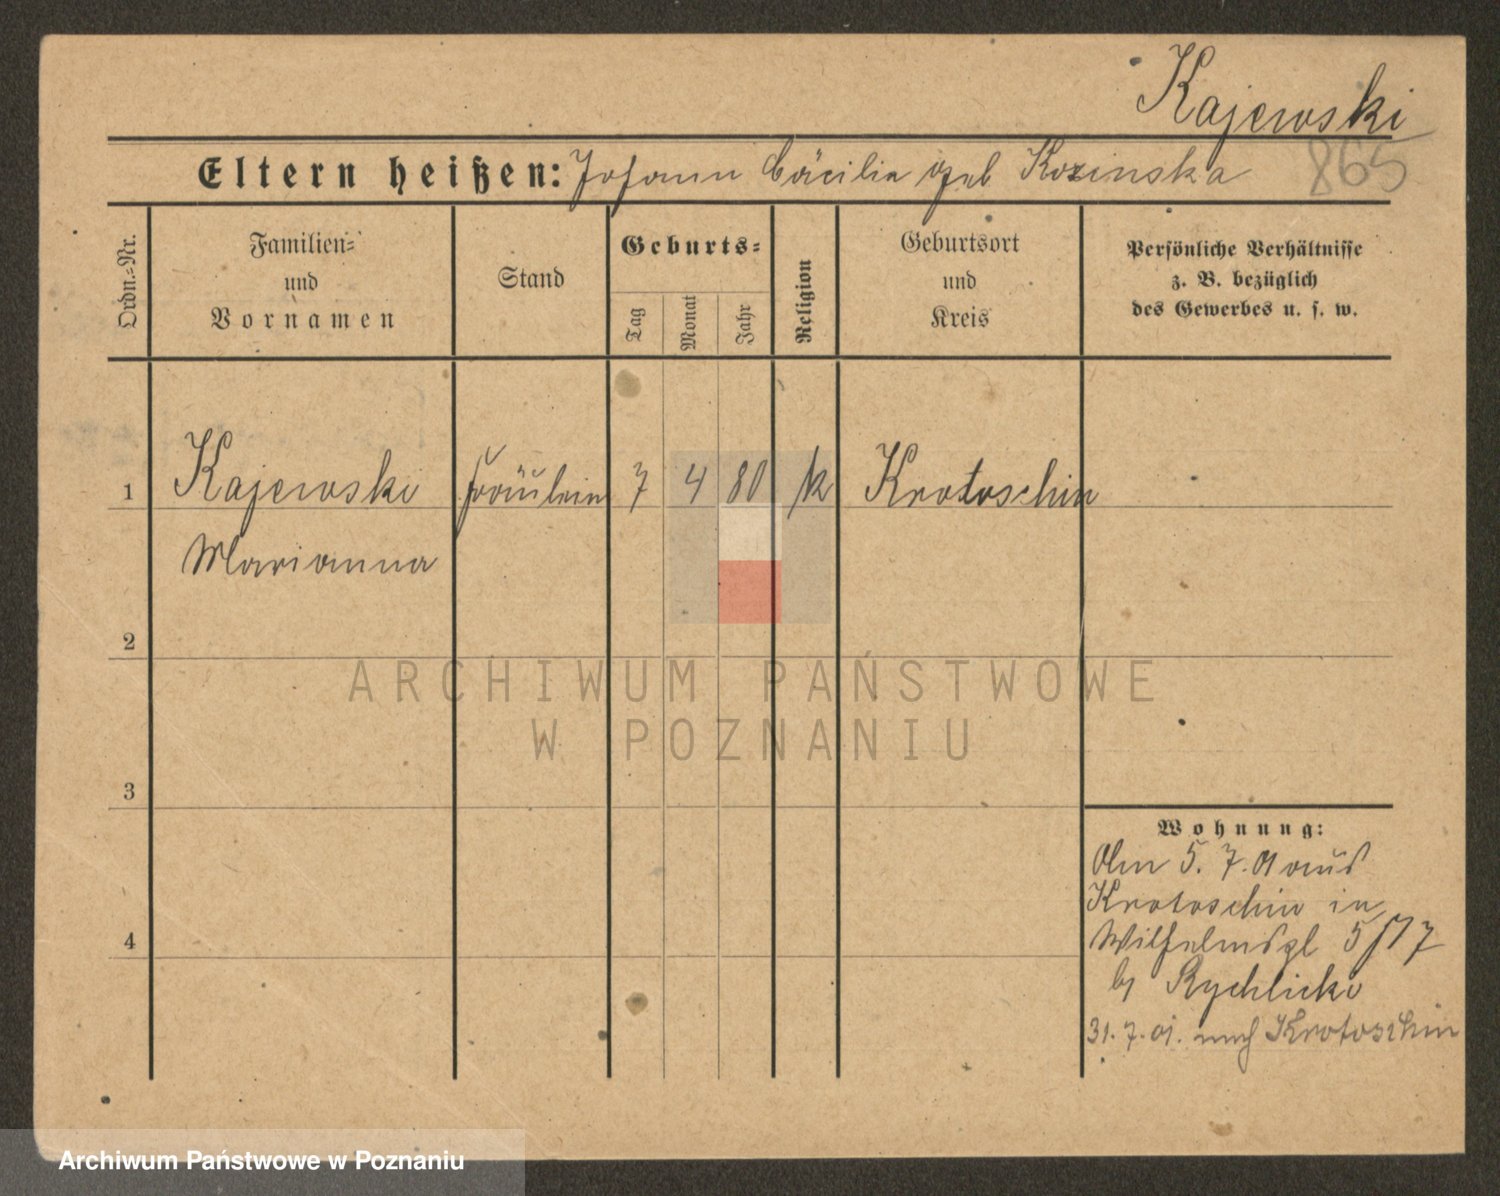 Kajewski
Eltern heißen: Johann Cäcilia geb Kozinska
865
Ordn.=Nr.
Familien=
und
Vornamen
Stand
Geburts=
Tag
Monat
Jahr
Religion
Geburtsort
und
Kreis
Persönliche Verhältnisse
z. B. bezüglich
des Gewerbes u. s. w.
1 Kajewski Fräulein 7 4 80 k Krotoschin
Marianna
2
ARCHIWUM PAŃSTWOWE
W POZNANIU
3
Wohnung:
Am 5. 7. 01 aus
Krotoschin in
4
Wilhelmspl 5/17
by Rychlicki
31. 7. 01. nach Krotoschin
Archiwum Państwowe w Poznaniu